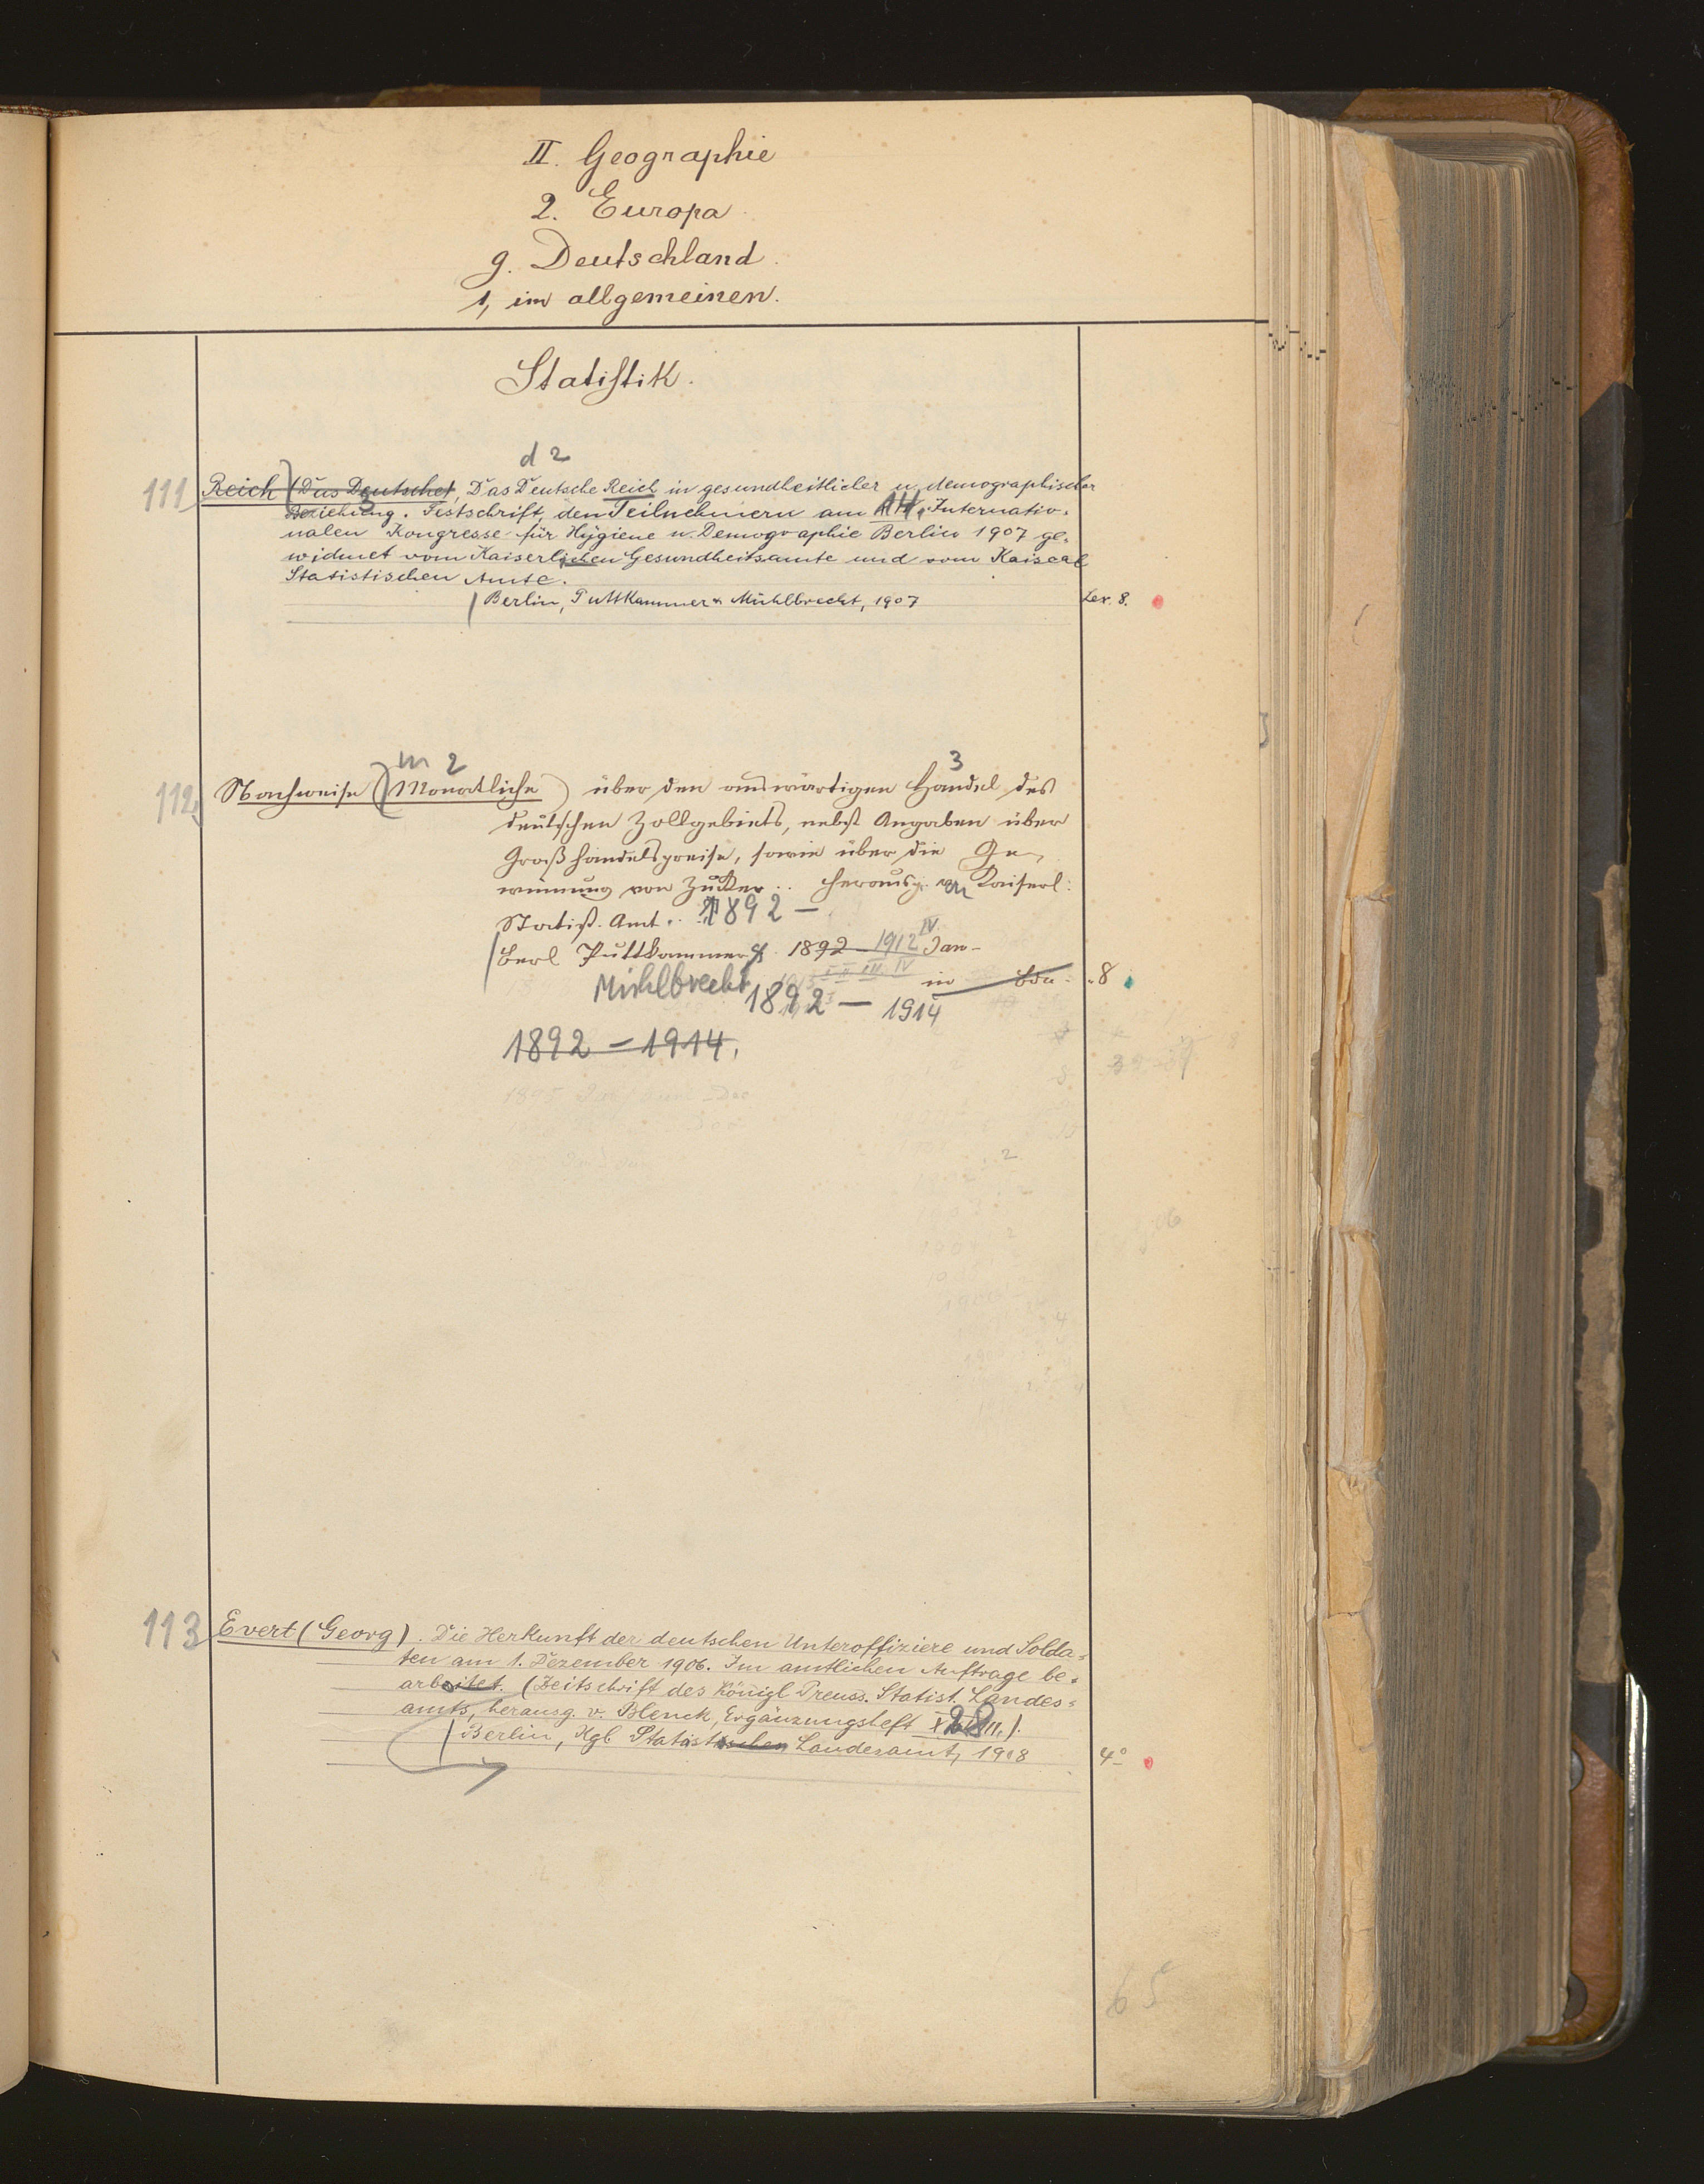 II. Geographie
2. Europa
g. Deutschland.
1, im allgemeinen.
Statistik.
d 2
111 Reich (Das Deutsche), Das Deutsche Reich in gesundheitlicher u. demographischer
Beziehung. Festschrift, den Teilnehmern am Internatio-
nalen Kongresse für Hygiene u. Demographie Berlin 1907 ge-
widmet vom Kaiserlichen Gesundheitsamte und vom Kaiserl
Statistischen Amte.
Berlin, Puttkammer & Mühlbrecht, 1907 Lex. 8.
m 2 3
112 Nachweise (Monatliche) über den auswärtigen Handel des
deutschen Zollgebiets, nebst Angaben über
Großhandelspreise, sowie über die Ge-
winnung von Zucker.. Herausg. Kaiserl.
Statist. Amt. 1892 –
Berl Puttkammer & 1892 – 1912 IV Jan –
I II III IV
Mühlbrecht 8
1892 – 1914
1892 – 1914.
113 Evert (Georg). Die Herkunft der deutschen Unteroffiziere und Solda-
ten am 1. Dezember 1906. Im amtlichen Auftrage be-
arbeitet. (Zeitschrift des Königl Preuss. Statist. Landes-
amts, herausg. v. Blenck, Ergänzungsheft 28).
Berlin, Kgl. Statistischen Landesamt, 1908 4°
65